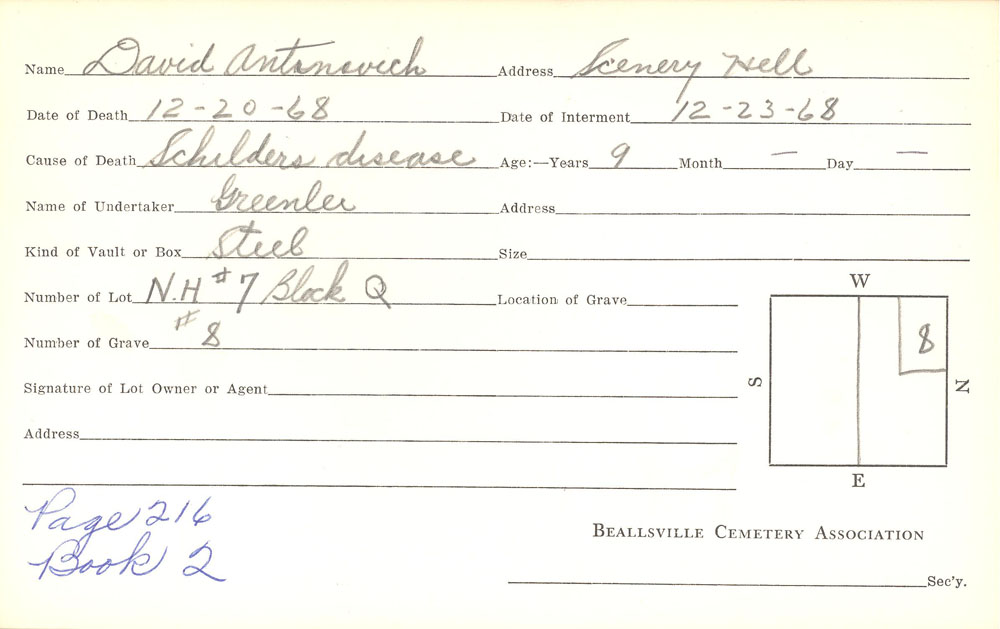 Name David Antonovich Address Scenery Hill
Date of Death 12-20-68 Date of Interment 12-23-68
Cause of Death Schilders disease Age:—Years 9 Month — Day —
Name of Undertaker Greenlee Address
Kind of Vault or Box Steel Size
Number of Lot N.H #7 Block Q Location of Grave
Number of Grave #8
Signature of Lot Owner or Agent
Address
W
8
S
N
E
Page 216
Book 2
BEALLSVILLE CEMETERY ASSOCIATION
Sec'y.